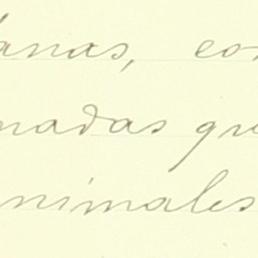 anas, co
nadas que
animales